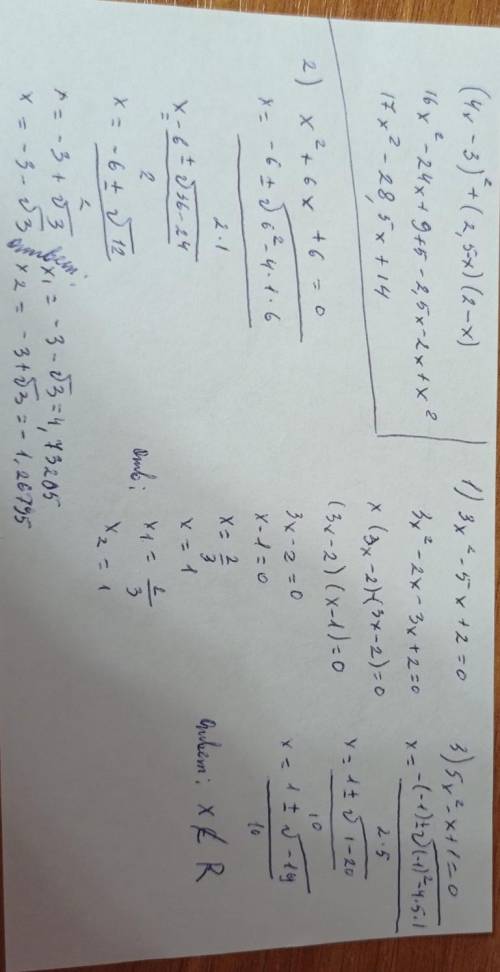 (4x-3)²+(2,5x)(2-x)
16x²-24x+9+5-2,5x-2x+x²
17x²-28,5x+14
2) x²+6x+6=0
x = -6±√6²-4·1·6
2·1
x = -6±√36-24
2
x = -6±√12
2
x = -3+√3
x = -3-√3
Ответ:
x₁ = -3-√3=4,73205
x₂ = -3+√3=-1,26795
1) 3x²-5x+2=0
3x²-2x-3x+2=0
x(3x-2)-(3x-2)=0
(3x-2)(x-1)=0
3x-2=0
x-1=0
x=2/3
x=1
Отв:
x₁=2/3
x₂=1
3) 5x²-x+1=0
x=-(-1)±√(-1)²-4·5·1
2·5
x=1±√1-20
10
x=1±√-19
10
Ответ: x∉R